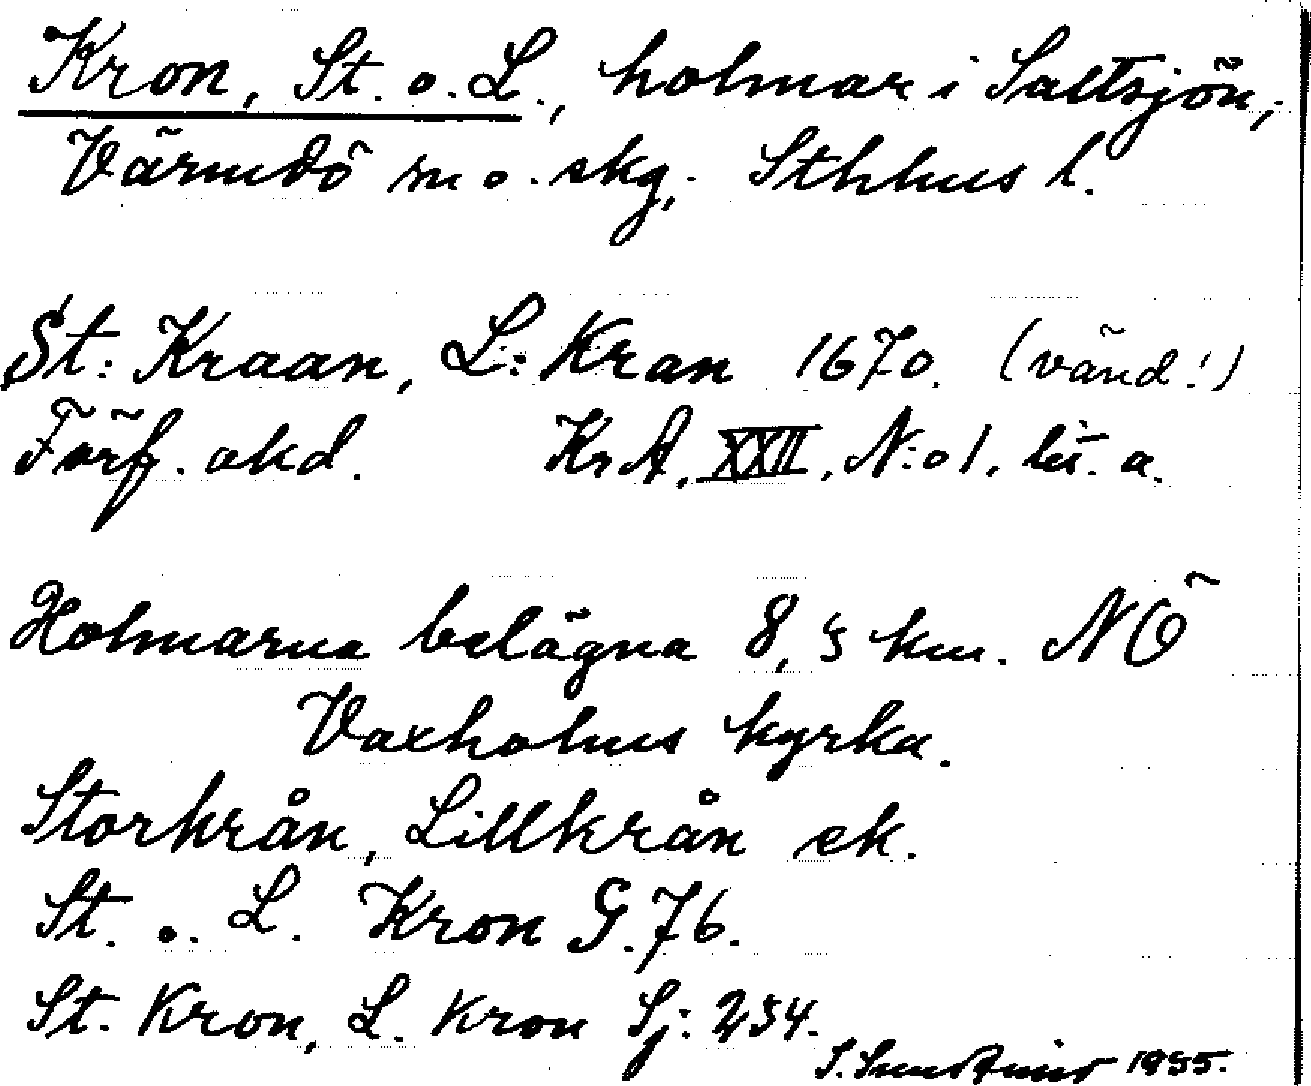 Kron, St. o. L., holmar i Saltsjön,
Värmdö m o. skg, Sthlms l.
St: Kraan, L: Kran 1670. (vänd!)
Förf. okd. KrA, XXII, N:o 1. lit. a.
Holmarna belägna 8,5 km. NÖ
Vaxholms kyrka.
Storkrån, Lillkrån ek.
St. o. L. Kron G. 76.
St. Kron, L. Kron Sj: 234.
1955.